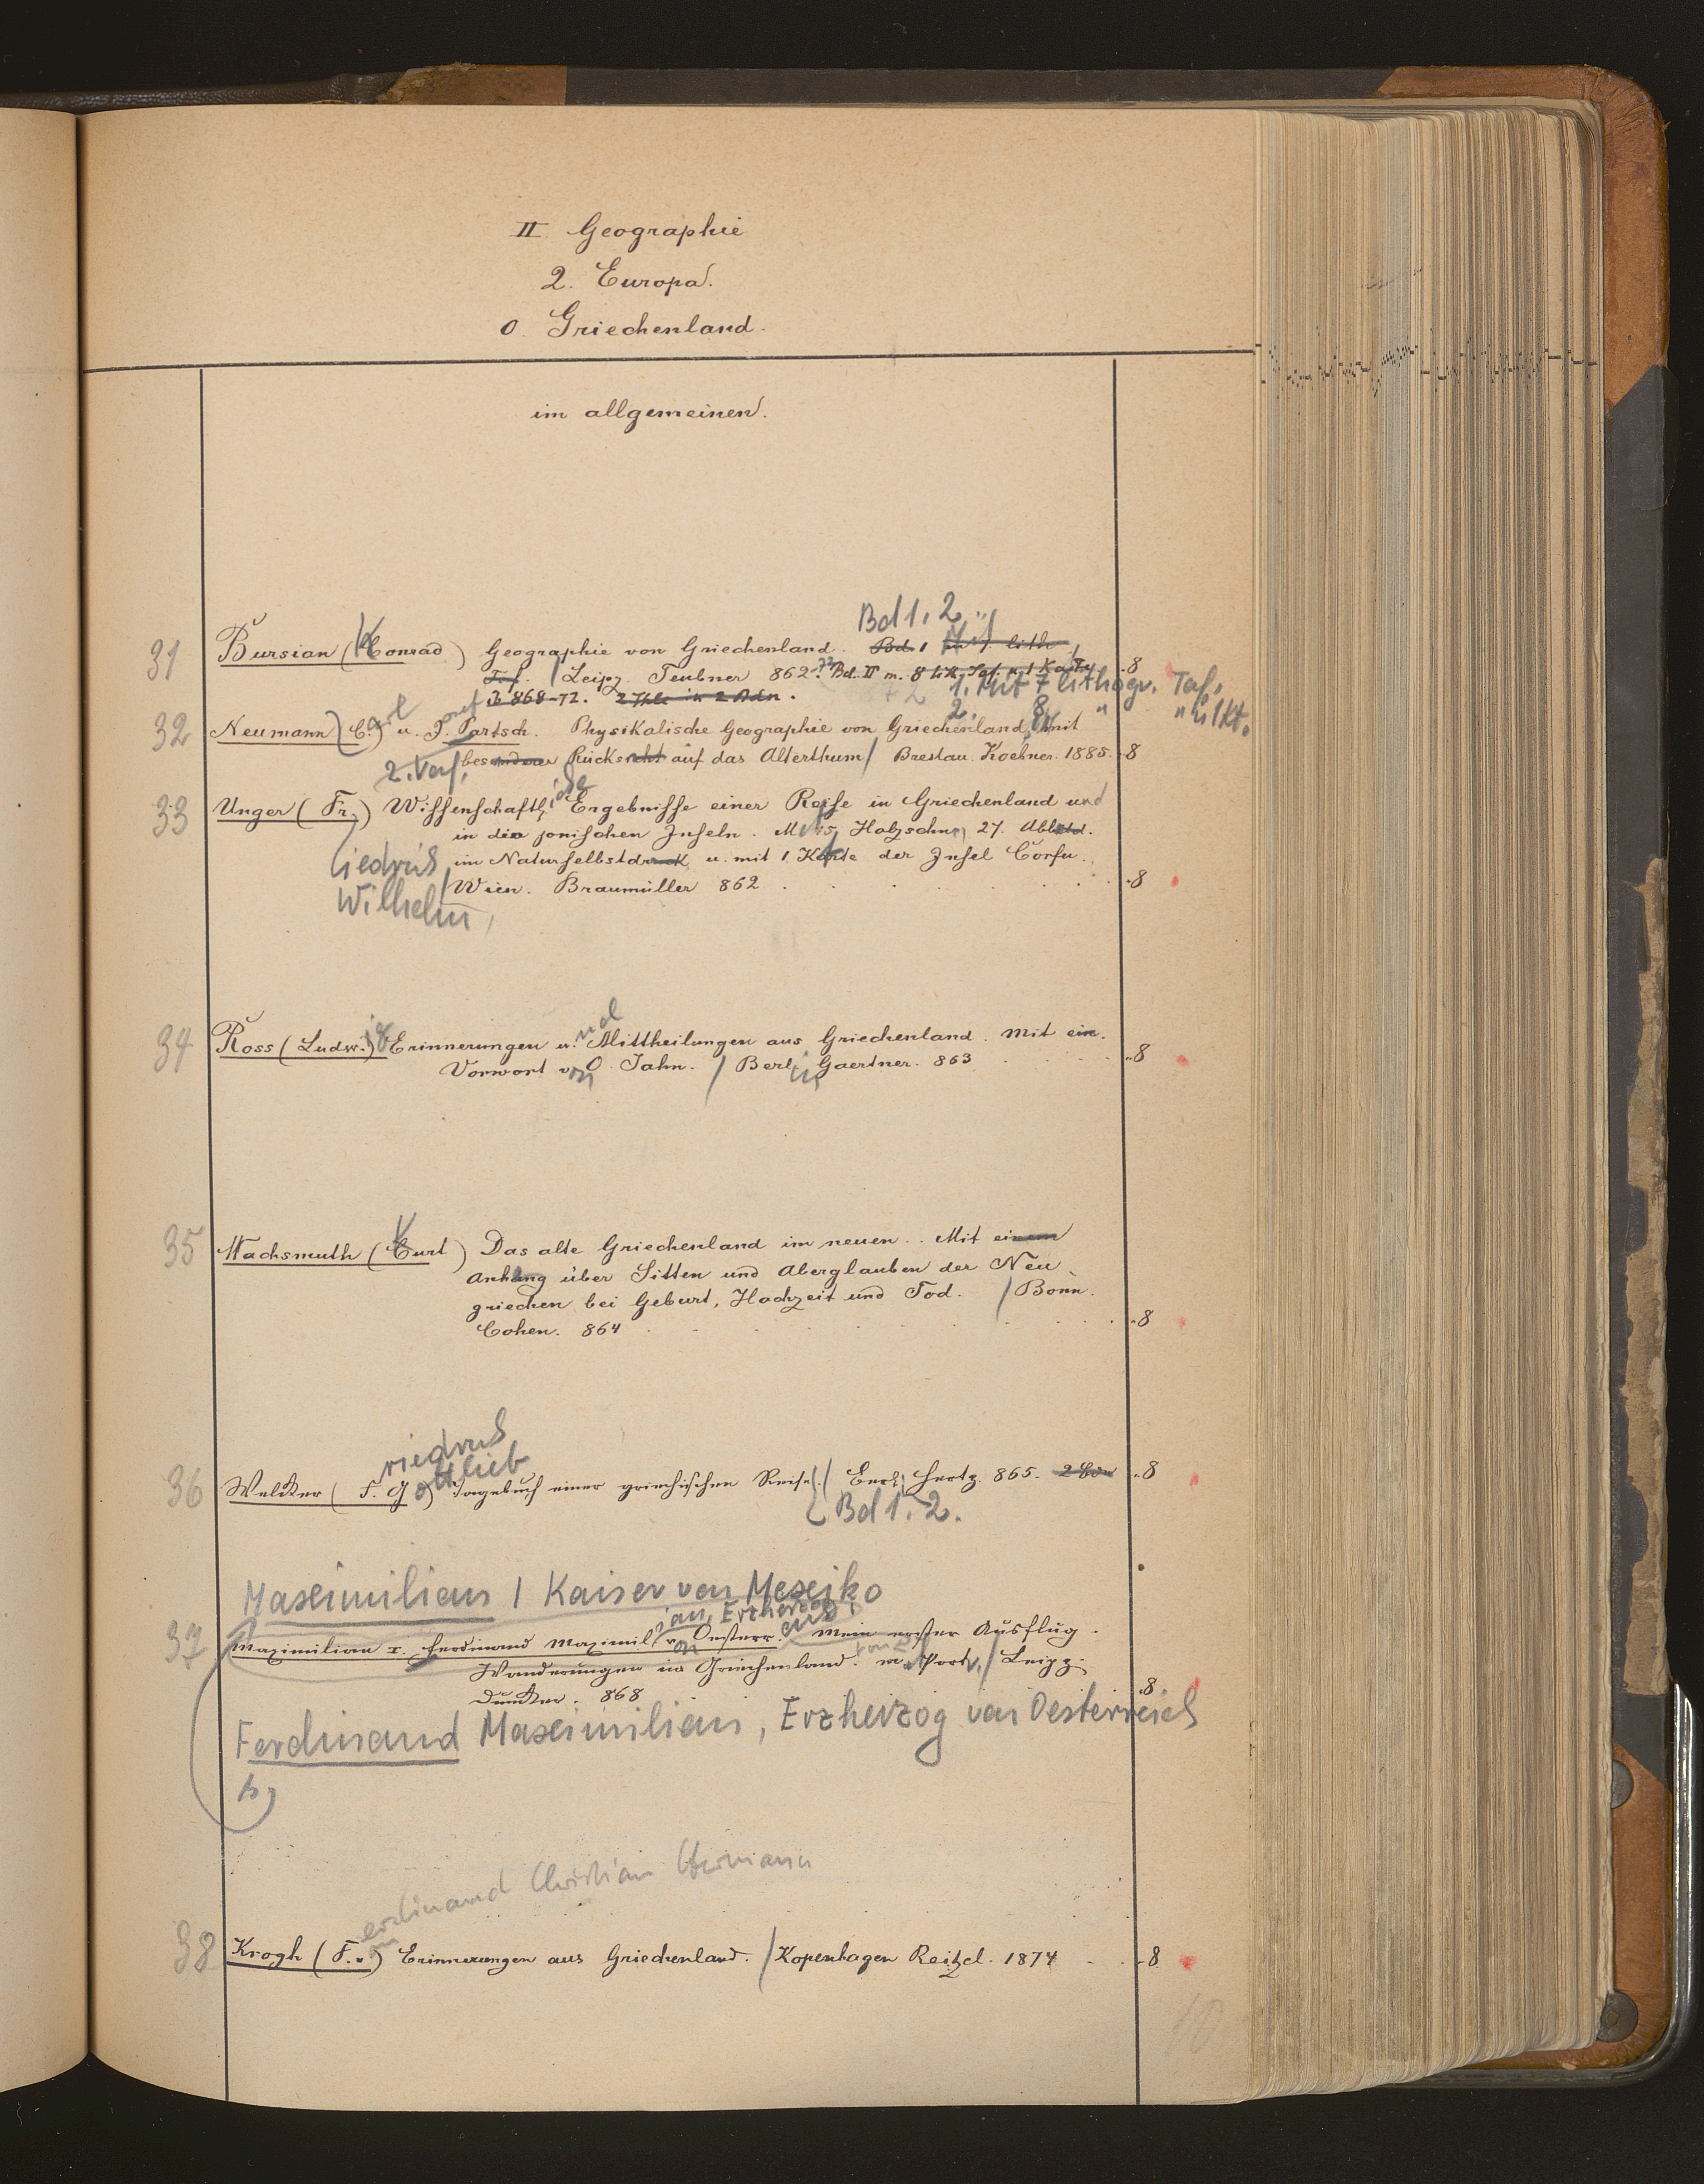 II Geographie
2. Europa.
o. Griechenland.
im allgemeinen.
Bd 1. 2.
31 Bursian (Conrad) Geographie von Griechenland. Bd. 1 lith.
Taf. / Leipz. Teubner 862-72. Bd. II m. 8 lith. Taf. u. 1 Karte 8
868-72. 2 Thle in 2 Bdn.
1. Mit 7 lithogr. Taf.
2. " 8 " " u. 1 Kt.
32 Neumann, C.arl u. J.osef Partsch. Physikalische Geographie von Griechenland, mit
2. Verf. besonderer Rücksicht auf das Alterthum / Breslau. Koebner. 1885. 8
33 Unger (Fr.) Wissenschaftl. Ergebnisse einer Reise in Griechenland und
in den jonischen Inseln. Mit 45 Holzschn. 27. Abbild.
im Naturselbstdruck u. mit 1 Karte der Insel Corfu.
/ Wien. Braumüller 862 8
iedrich
Wilhelm
34 Ross (Ludw.ig) Erinnerungen und Mittheilungen aus Griechenland. Mit ein.
Vorwort von O. Jahn. / Berlin Gaertner. 863 8
35 Wachsmuth (Curt) Das alte Griechenland im neuen. Mit einem
Anhang über Sitten und Aberglauben der Neu
griechen bei Geburt, Hochzeit und Tod. / Bonn.
Cohen. 864 8
riedrich
ottlieb
36 Welcker (F. G.) Tagebuch einer griechischen Reise. / Berl. Hertz. 865. 2 Bde 8
Bd 1. 2.
Maximilian I Kaiser von Mexiko
ian, Erzherzog
37 Maximilian I. Ferdinand Maximil. v. Oesterr. Mein erster Ausflug.
Wanderungen in Griechenland. m. Portr. / Leipz.
Duncker. 868 8
Ferdinand Maximilian, Erzherzog von Oesterreich
s.
erdinand Christian Hermann
38 Krogh (F. v.) Erinnerungen aus Griechenland. / Kopenhagen Reitzel. 1874 8
10